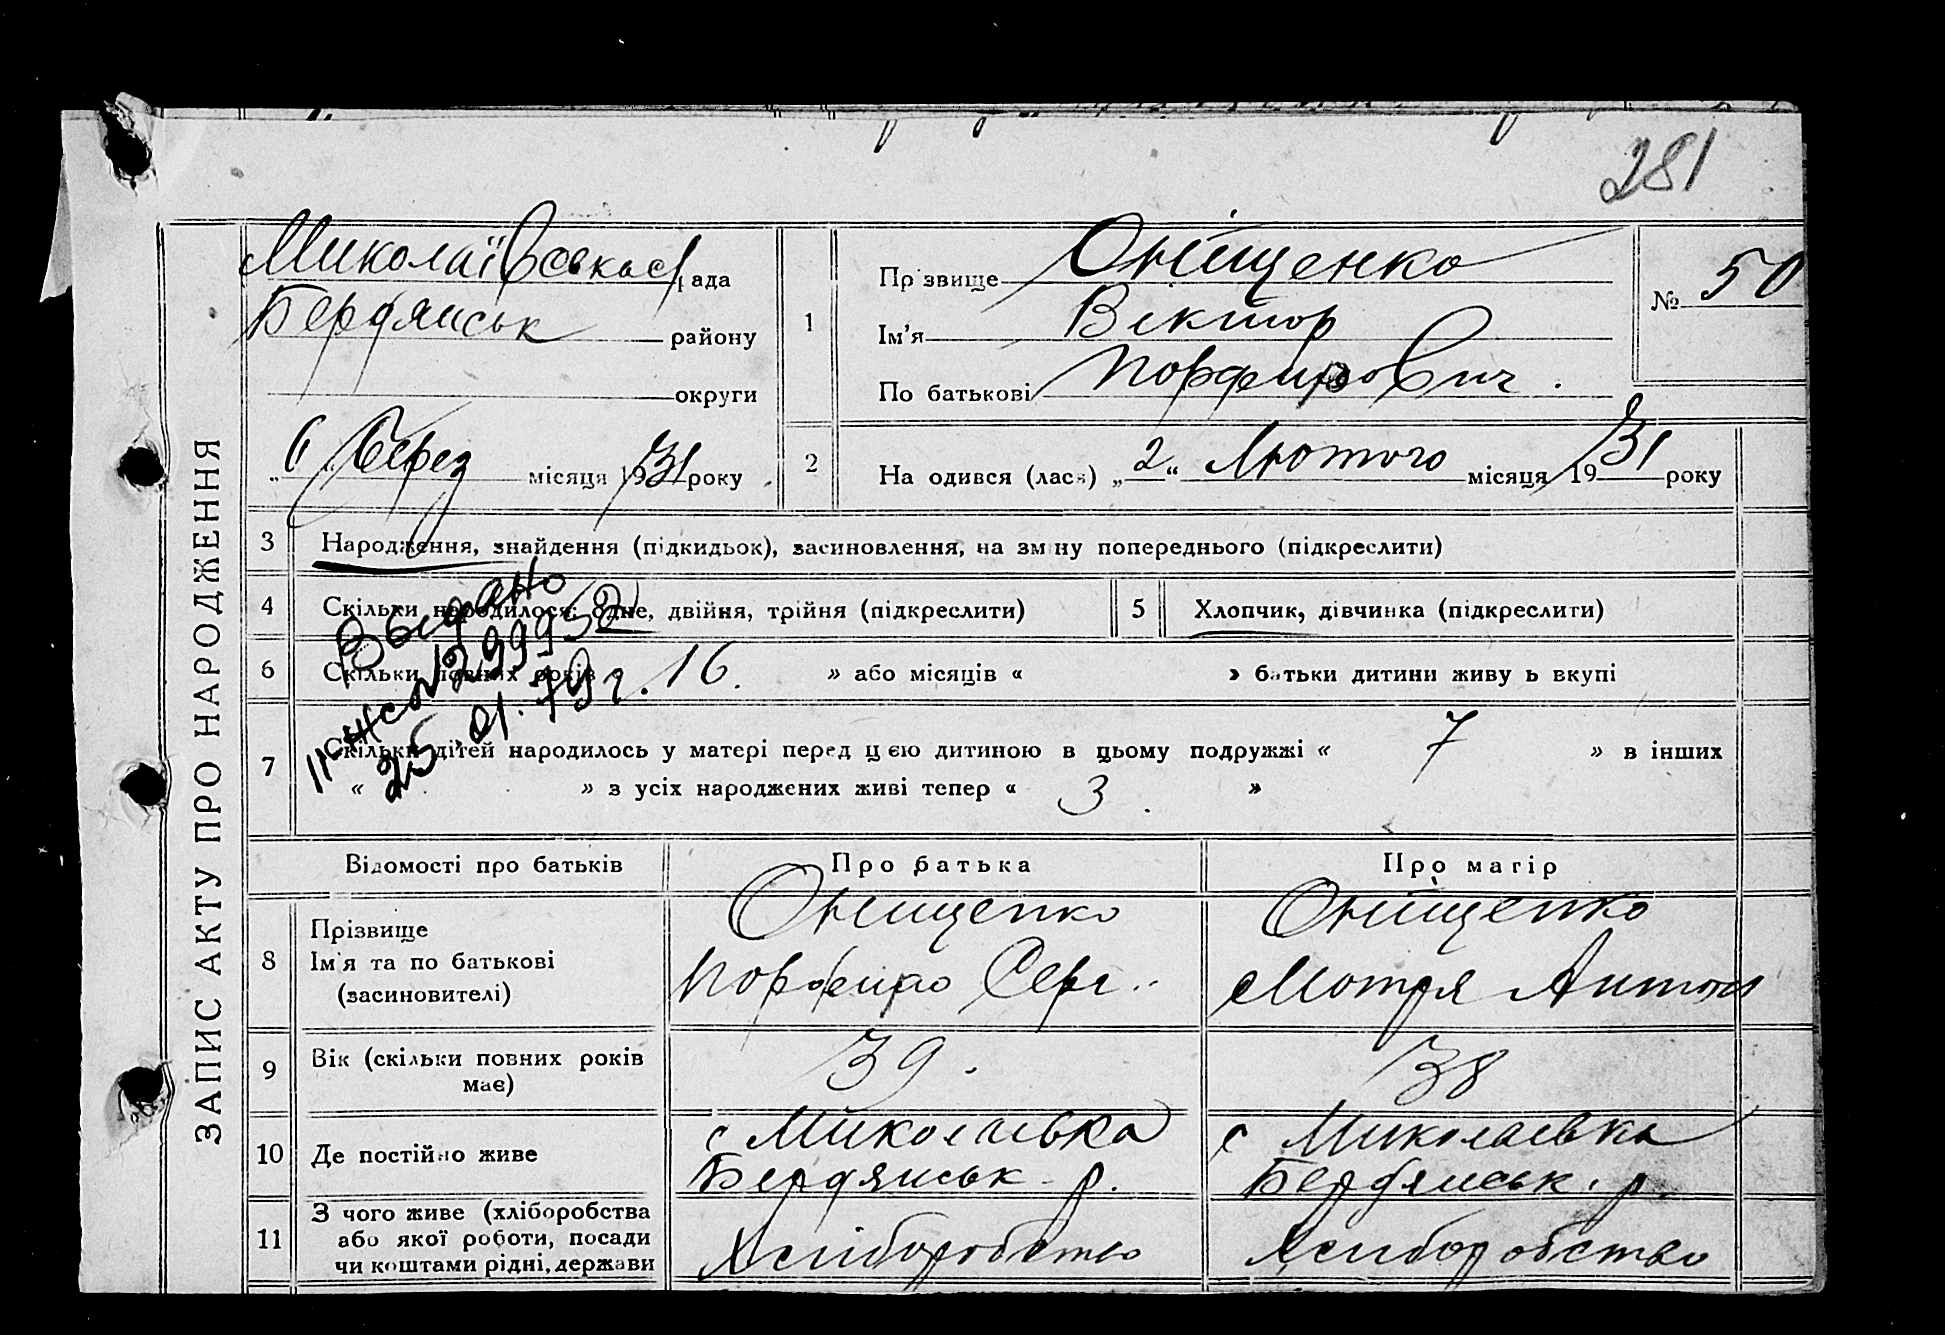 281
ЗАПИС АКТУ ПРО НАРОДЖЕННЯ
Миколаївська рада
Бердянськ району
округи
„6 Берез місяця 1931 року
1
Прізвище Оніщенко
Ім'я Віктор
По батькові Порфирович.
№ 50
2
Народився (лася) „2“ Лютого місяця 1931 року
3 Народження, знайдення (підкидьок), засиновлення, на зміну попереднього (підкреслити)
4 Скільки народилося: одне, двійня, трійня (підкреслити)
5 Хлопчик, дівчинка (підкреслити)
Выдано
№ 299952
25.01.79 г.
6 Скільки повних років 16. » або місяців « » батьки дитини живуть вкупі
7 Скільки дітей народилось у матері перед цією дитиною в цьому подружжі « 7 » в інших
« » з усіх народжених живі тепер « 3 »
Відомості про батьків Про батька Про матір
8 Прізвище Ім'я та по батькові (засиновителі)
Онищенко Порфиро Серг..
Оніщенко Мотря Антон
9 Вік (скільки повних років має) 39. 38
10 Де постійно живе
с Миколаівка Бердянськ. р.
с Миколаевка Бердянськ. р.
11 З чого живе (хліборобства або якої роботи, посади чи коштами рідні, держави
Хліборобство
Хлиборобство